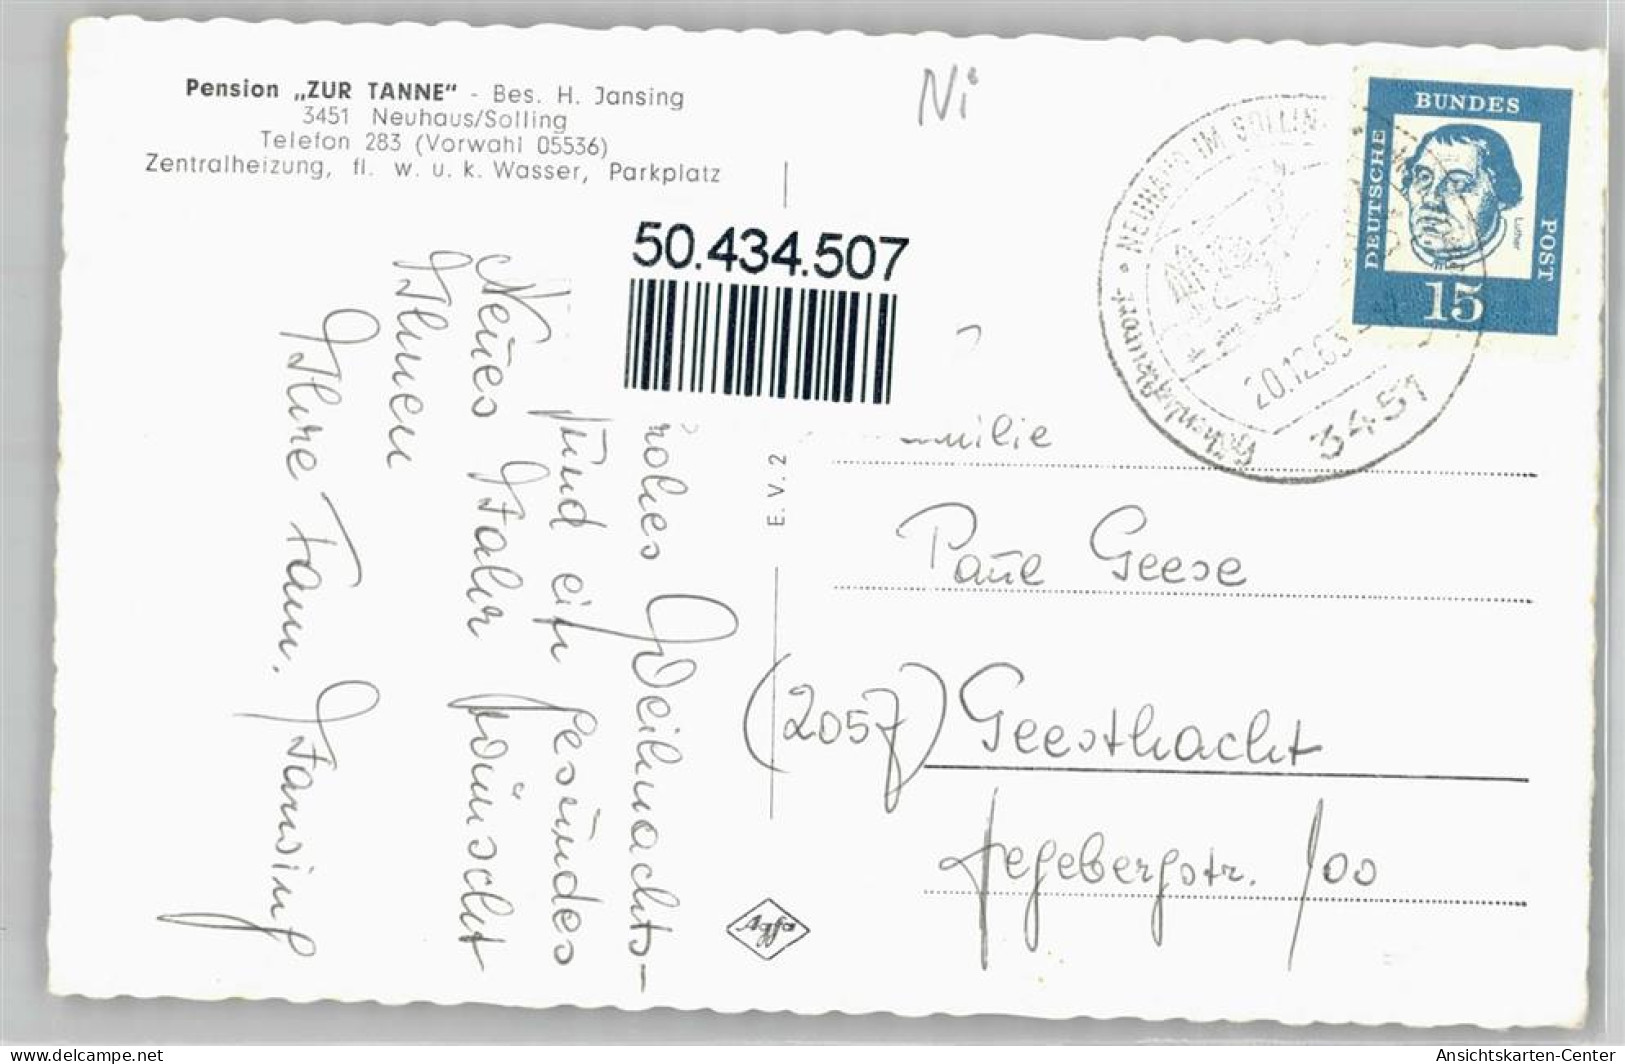 Pension „ZUR TANNE“ - Bes. H. Jansing
3451 Neuhaus/Solling
Telefon 283 (Vorwahl 05536)
Zentralheizung, fl. w. u. k. Wasser, Parkplatz
Ni
NEUHAUS IM SOLLING
20.12.63
3451
DEUTSCHE
BUNDES
POST
Luther
15
50.434.507
rohes Weihnachts-
und ein gesundes
Neues Jahr wünscht
Ihnen
Ihre Fam. Jansing
E.V.2
milie
Paul Geese
(2057) Geesthacht
Hegebergstr. 100
Agfa
delcampe.net
Ansichtskarten-Center